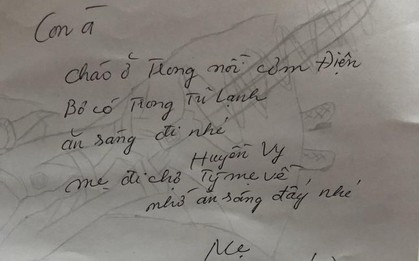 Con à
cháo ở Trong nồi cơm Điện
Bò có Trong Tủ Lạnh
ăn sáng đi nhé
Huyền Vy
mẹ đi chợ Tý mẹ về
nhớ ăn sáng đấy nhé
Mẹ